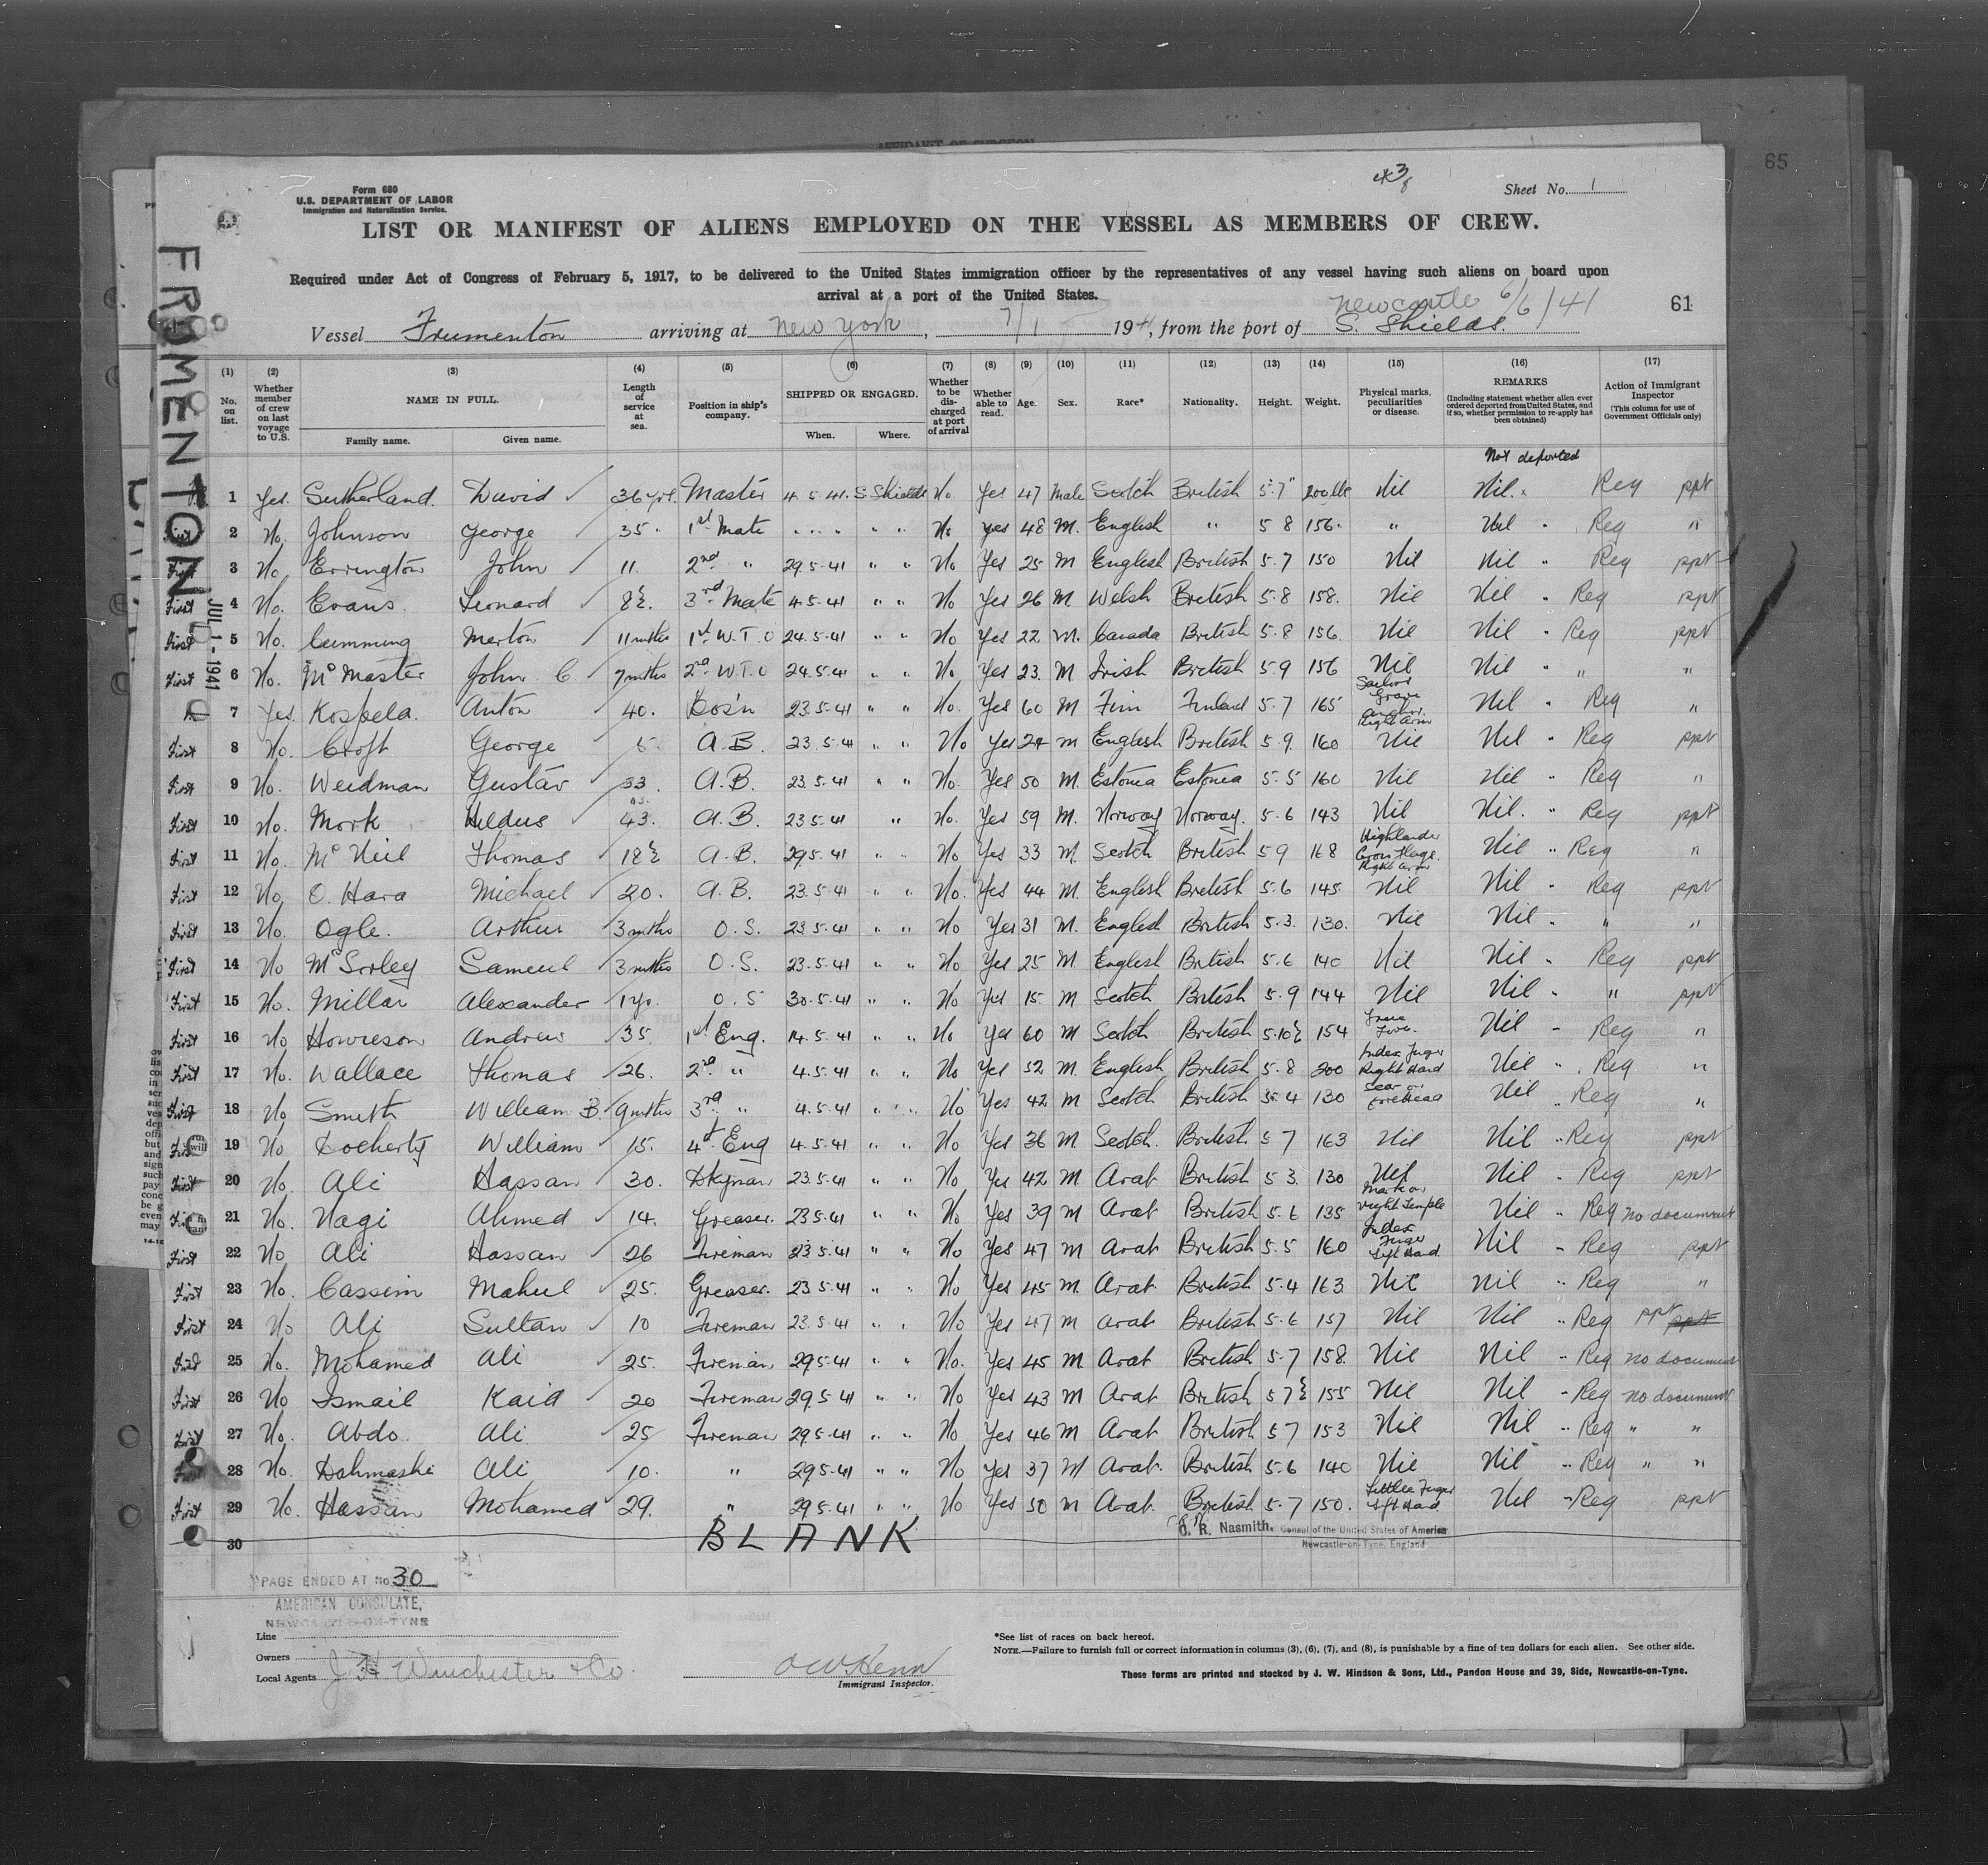 AFFIDAVIT OF SURGEON
65
Form 680
U.S. DEPARTMENT OF LABOR
Immigration and Naturalization Service.
Sheet No. 1
LIST OR MANIFEST OF ALIENS EMPLOYED ON THE VESSEL AS MEMBERS OF CREW.
Required under Act of Congress of February 5, 1917, to be delivered to the United States immigration officer by the representatives of any vessel having such aliens on board upon
arrival at a port of the United States.
Newcastle 6/6/41
61
Vessel Frumenton arriving at New York, 7/1 1941, from the port of S. Shields.
FROMENTON
JUL 1 - 1941
(1) No. on list.
(2) Whether member of crew on last voyage to U.S.
(3) NAME IN FULL. Family name. Given name.
(4) Length of service at sea.
(5) Position in ship's company.
(6) SHIPPED OR ENGAGED. When. Where.
(7) Whether to be discharged at port of arrival
(8) Whether able to read.
(9) Age.
(10) Sex.
(11) Race*
(12) Nationality.
(13) Height.
(14) Weight.
(15) Physical marks, peculiarities or disease.
(16) REMARKS (Including statement whether alien ever ordered deported from United States, and if so, whether permission to re-apply has been obtained)
(17) Action of Immigrant Inspector (This column for use of Government Officials only)
Not deported
1 Yes. Sutherland. David 36 yrs. Master 4.5.41. S Shields No. Yes 47 Male Scotch British 5.7" 200 lbs Nil Nil. Reg ppt
First 2 No. Johnson George 35 " 1st Mate " " " " No. Yes 48 M. English " 5 8 156. " Nil " Reg "
First 3 No. Errington John 11. 2nd " 29.5.41 " " No Yes 25 M English British 5.7 150 Nil Nil " Reg ppt
First 4 No. Evans. Leonard 8½. 3rd Mate 4.5.41 " " No Yes 26 M Welsh British 5.8 158. Nil Nil " Reg ppt
First 5 No. Cumming Merton 11 mths 1st W.T.O 24.5.41 " " No Yes 22 M. Canada British 5.8 156. Nil Nil " Reg ppt
First 6 No. McMaster John C. 7 mths 2nd W.T.O 24.5.41 " " No. Yes 23. M Irish British 5.9 156 Nil Nil " " "
7 Yes. Kospela. Anton 40. Bos'n 23.5.41 " " No. Yes 60 M Finn Finland 5.7 165 Sailors Grave Anchor. Right Arm Nil " Reg "
First 8 No. Croft George 5. A.B. 23.5.41 " " No Yes 24 M English British 5.9. 160 Nil Nil " Reg ppt
First 9 No. Weidman Gustav 33. A.B. 23.5.41 " " No. Yes 50 M. Estonia Estonia 5.5 160 Nil Nil " Reg "
First 10 No. Mork 43. A.B. 23.5.41 " No. Yes 59 M. Norway Norway. 5.6 143 Nil Nil. " Reg ppt
First 11 No. McNeil Thomas 18½ A.B. 29.5.41 " " No Yes 33 M. Scotch British 5 9 168 Highlander Cross Flags. Right Arm Nil " Reg "
First 12 No, O. Hara Michael 20. A.B. 23.5.41 " " No. Yes 44 M. English British 5.6 145. Nil Nil " Reg ppt
First 13 No. Ogle. Arthur 3 mths O.S. 23.5.41 " " No Yes 31 M. English British 5.3. 130. Nil Nil " " "
First 14 No McSorley Samuel 3 mths O.S. 23.5.41 " " No Yes 25 M English British 5.6 140 Nil Nil " Reg ppt
First 15 No. Millar Alexander 1 yr. O.S 30.5.41 " " No Yes 15. M Scotch British 5.9 144 Nil Nil " " ppt
First 16 No Howieson Andrew 35. 1st Eng. 14.5.41 " " No Yes 60 M Scotch British 5.10½ 154 True Love. Nil " Reg "
First 17 No. Wallace Thomas 26. 2nd " 4.5.41 " " No Yes 52 M. English British 5.8 200 Index Finger Right Hand Nil " Reg "
First 18 No Smith William B. 9 mths 3rd " 4.5.41 " " No Yes 42 M Scotch British 5.4 130 Scar on Forehead Nil " Reg "
First 19 No Docherty William 15. 4th Eng 4.5.41 " " No Yes 36 M Scotch. British 5 7 163 Nil Nil " Reg ppt
First 20 No. Ali Hassan 30. Dkyman 23.5.41 " " No Yes 42 M Arab British 5 3. 130 Nil Nil " Reg ppt
21 No. Nagi Ahmed 14. Greaser. 23.5.41 " " No Yes 39 M Arab British 5.6 135 Mark on right Temple Nil " Reg no document
First 22 No Ali Hassan 26 Fireman 23.5.41 " " No Yes 47 M Arab British 5.5 160 Index Finger Left Hand Nil " Reg ppt
First 23 No. Cassim Mahul 25. Greaser. 23.5.41 " " No Yes 45 M. Arab British 5.4 163. Nil Nil " Reg "
First 24 No Ali Sultan 10 Fireman 23.5.41 " " No Yes 47 M Arab British 5.6 157 Nil Nil " Reg ppt ppt
First 25 No. Mohamed Ali 25. Fireman 29.5.41 " " No. Yes 45 M Arab British 5.7 158. Nil Nil " Reg no document
First 26 No Ismail Kaid 20 Fireman 29.5.41 " " No Yes 43 M Arab British 5 7½ 155 Nil Nil " Reg no document
First 27 No. Abdo. Ali 25 Fireman 29.5.41 " " No Yes 46 M Arab British 5 7 153 Nil Nil " Reg " "
First 28 No. Dahmashi Ali 10. " 29.5.41 " " No Yes 37 M Arab. British 5.6 140 Nil Nil " Reg " "
First 29 No. Hassan Mohamed 29. " 29.5.41 " " No Yes 50 M Arab. British 5.7 150. Little Finger Left Hand Nil " Reg ppt
30 BLANK
C. R. Nasmith. Consul of the United States of America
Newcastle-on-Tyne, England
PAGE ENDED AT No. 30
AMERICAN CONSULATE,
NEWCASTLE-ON-TYNE
Line
Owners
Local Agents J H Winchester & Co.
Immigrant Inspector.
*See list of races on back hereof.
NOTE.—Failure to furnish full or correct information in columns (3), (6), (7), and (8), is punishable by a fine of ten dollars for each alien. See other side.
These forms are printed and stocked by J. W. Hindson & Sons, Ltd., Pandon House and 39, Side, Newcastle-on-Tyne.